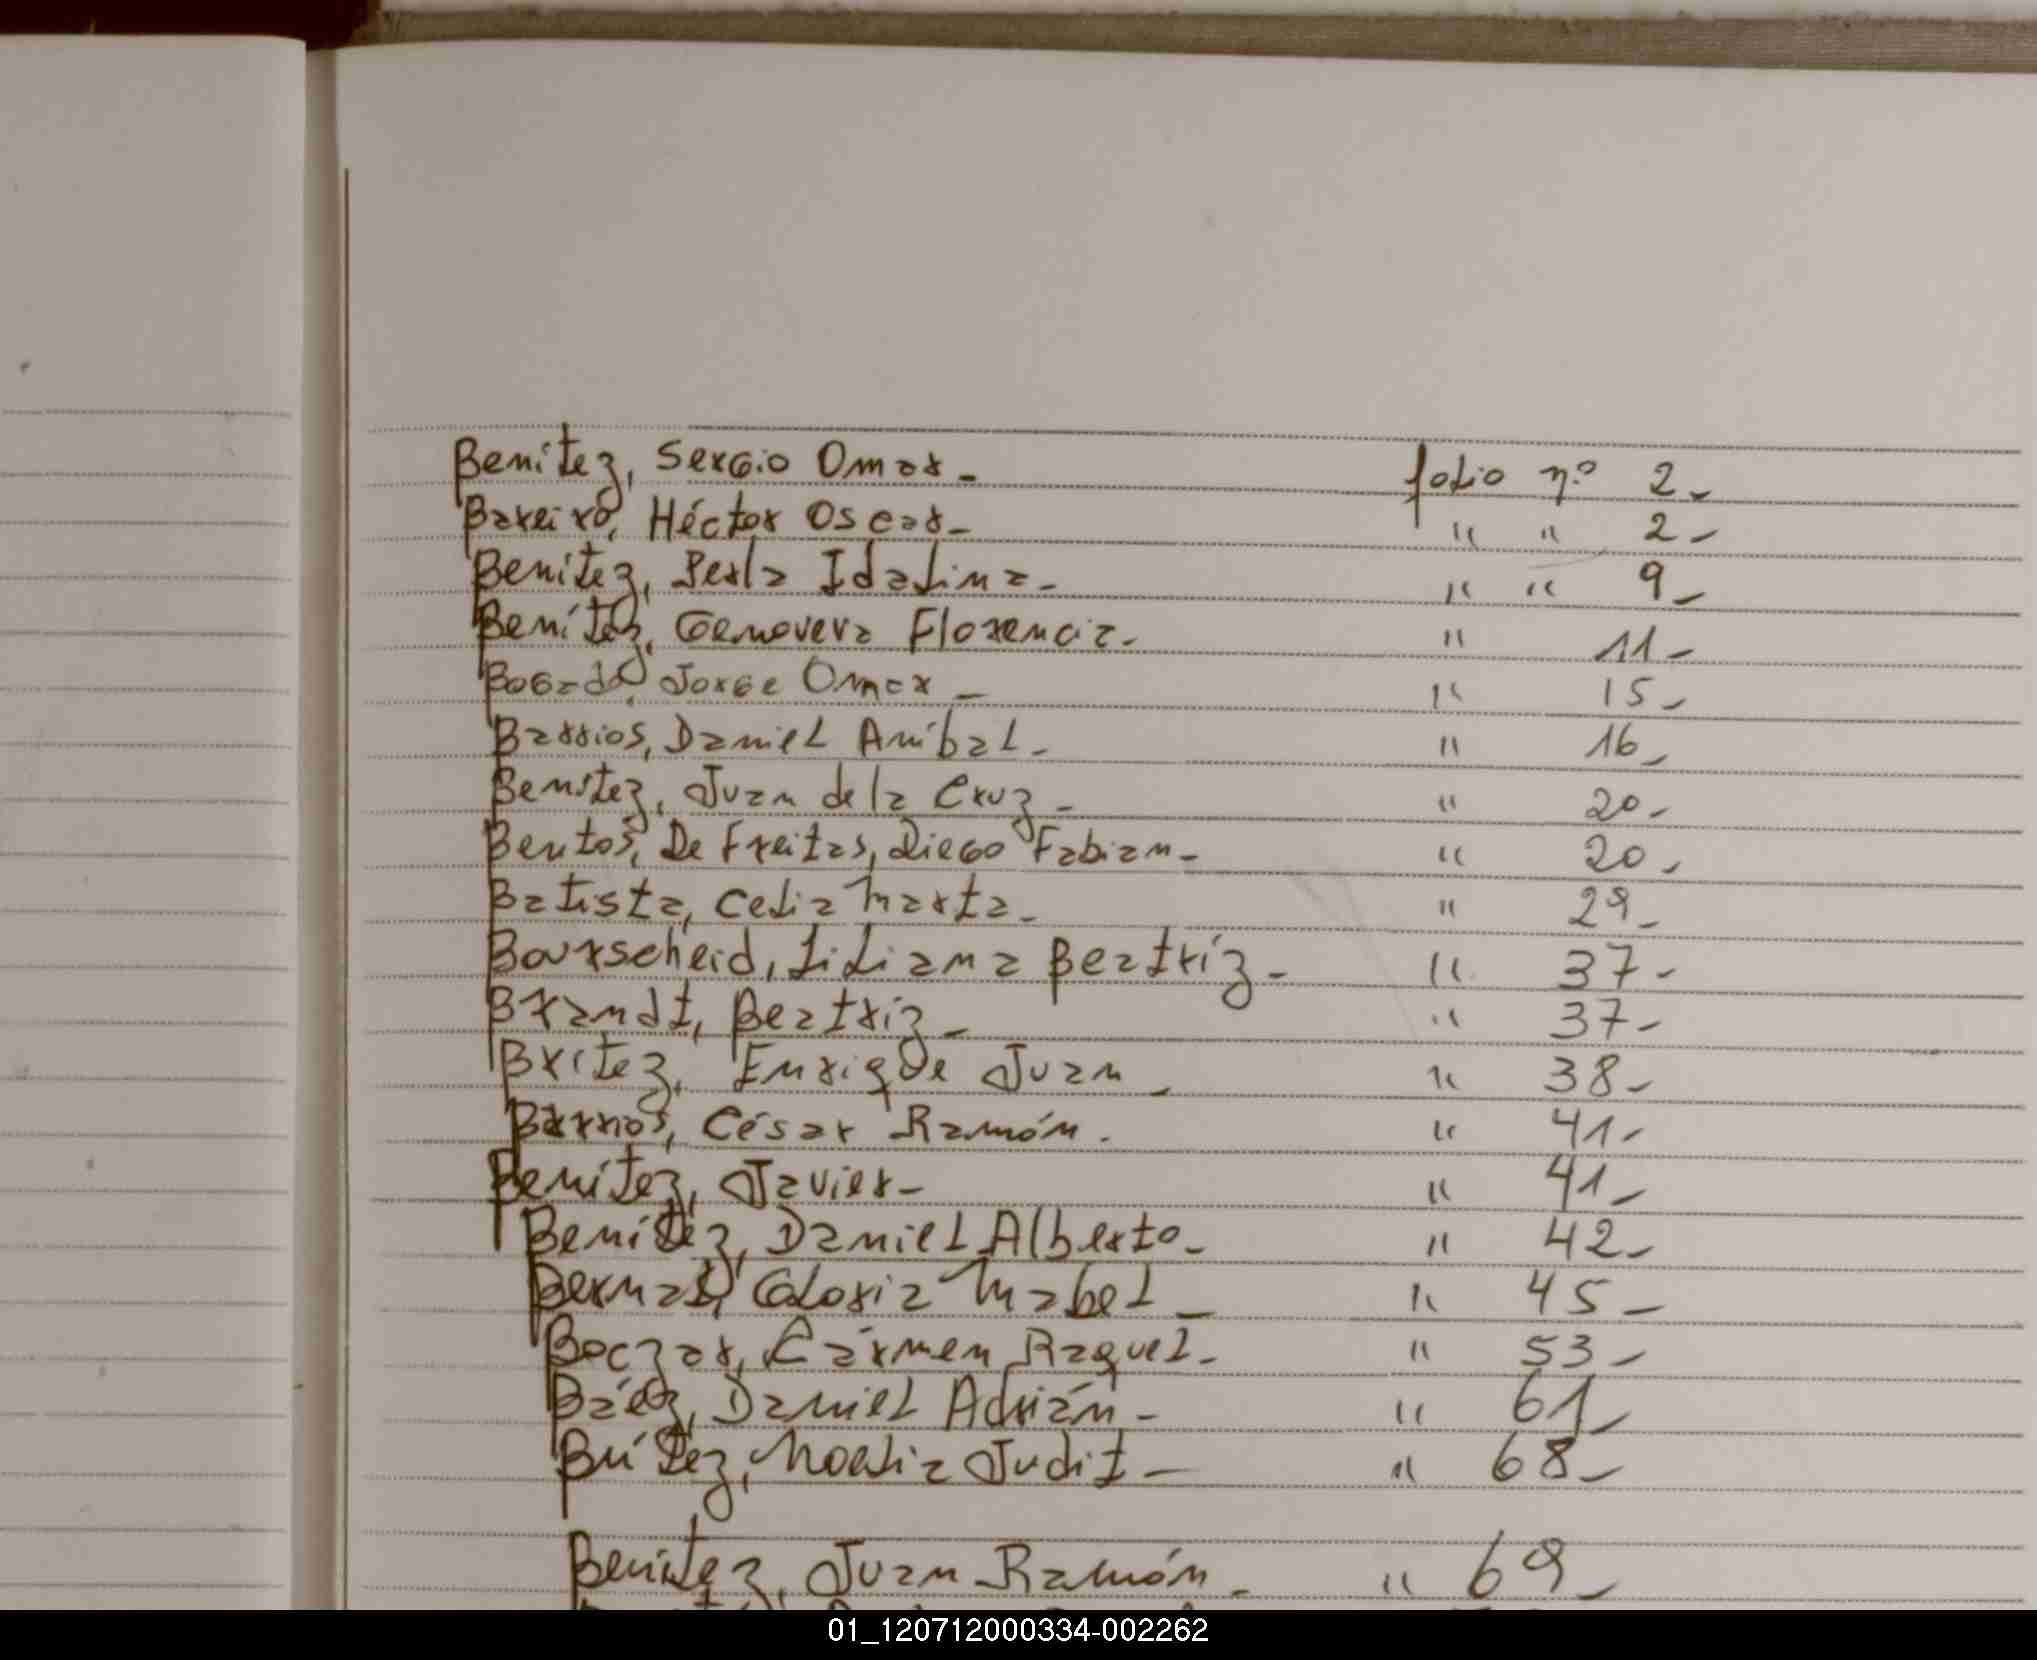 Benítez, Sergio Omar_ folio nº 2_
Bareiro, Héctor Oscar_ " " 2_
Benítez, Perla Idalina_ " " 9_
Benítez, Genoveva Florencia_ " 11_
Bogado, Jorge Omar_ " 15_
Barrios, Daniel Aníbal_ " 16_
Benítez, Juan de la Cruz_ " 20_
Bentos, De Freitas, Diego Fabian_ " 20_
Batista, Celia Marta_ " 29_
Bourscheid, Liliana Beatríz_ " 37_
Brandt, Beatriz_ " 37_
Brítez, Enrique Juan_ " 38_
Barrios, César Ramón. " 41_
Benítez, Javier_ " 41_
Benítez, Daniel Alberto_ " 42_
Bernal, Gloria Mabel_ " 45_
Boczar, Cármen Raquel_ " 53_
Báez, Daniel Adrián_ " 61_
Brítez, Noelia Judit_ " 68_
Benítez, Juan Ramón_ " 69_
01_120712000334-002262